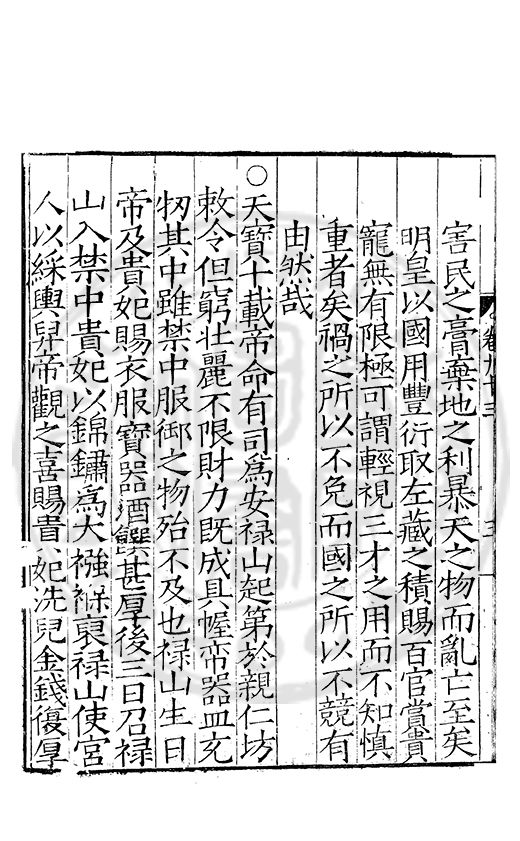 害民之膏棄地之利暴天之物而亂亡至矣
明皇以國用豐衍取左藏之積賜百官賞貴
寵無有限極可謂輕視三才之用而不知慎
重者矣禍之所以不免而國之所以不競有
由然哉
○天寶十載帝命有司爲安禄山起第於親仁坊
敕令但窮壯麗不限財力既成具幄帟器皿充
牣其中雖禁中服御之物殆不及也禄山生日
帝及貴妃賜衣服寶器酒饌甚厚後三日召禄
山入禁中貴妃以錦繡爲大襁褓裹禄山使宮
人以綵輿舁帝觀之喜賜貴妃洗兒金錢復厚